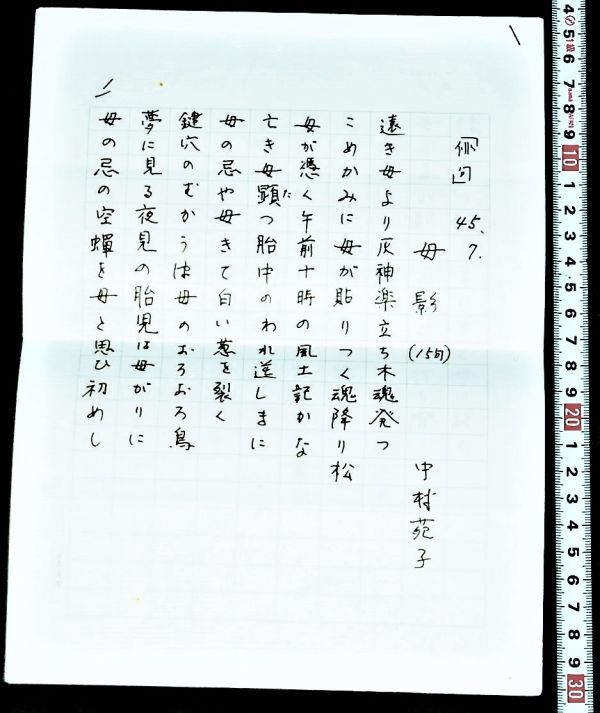 「俳句」 45.7.
母影 (15句)
中村苑子
遠き母より灰神楽立ち木魂発つ
こめかみに母が貼りつく魂降り松
母が憑く午前十時の風土記かな
亡き母顕つ胎中のわれ逆しまに
た
母の忌や母きて白い葱を裂く
鍵穴のむかうは母のおろおろ鳥
夢に見る夜見の胎児は母がりに
母の忌の空蟬を母と思ひ初めし